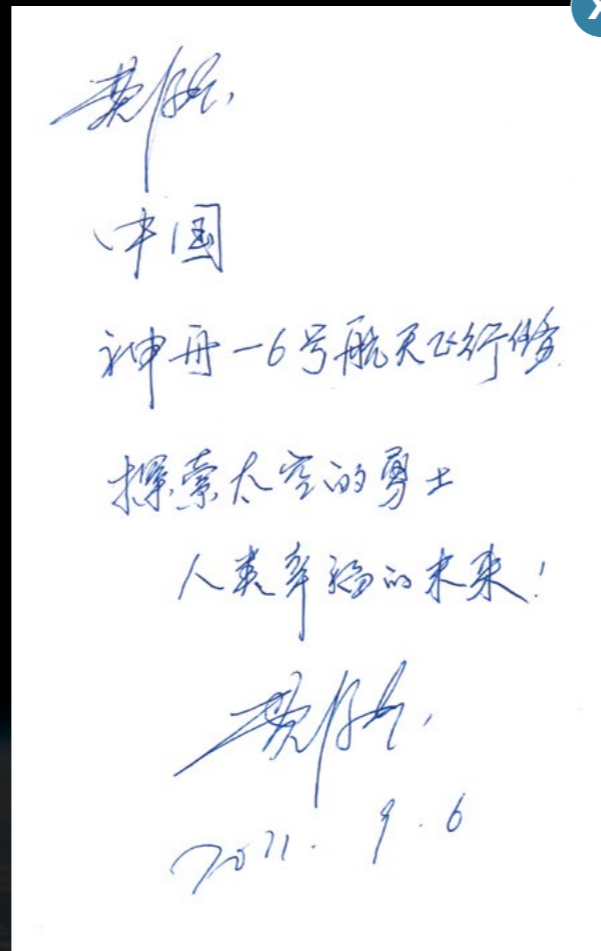 费俊龙
中国
神舟-6号航天飞行任务
探索太空的勇士
人类幸福的未来!
费俊龙
2011. 9. 6